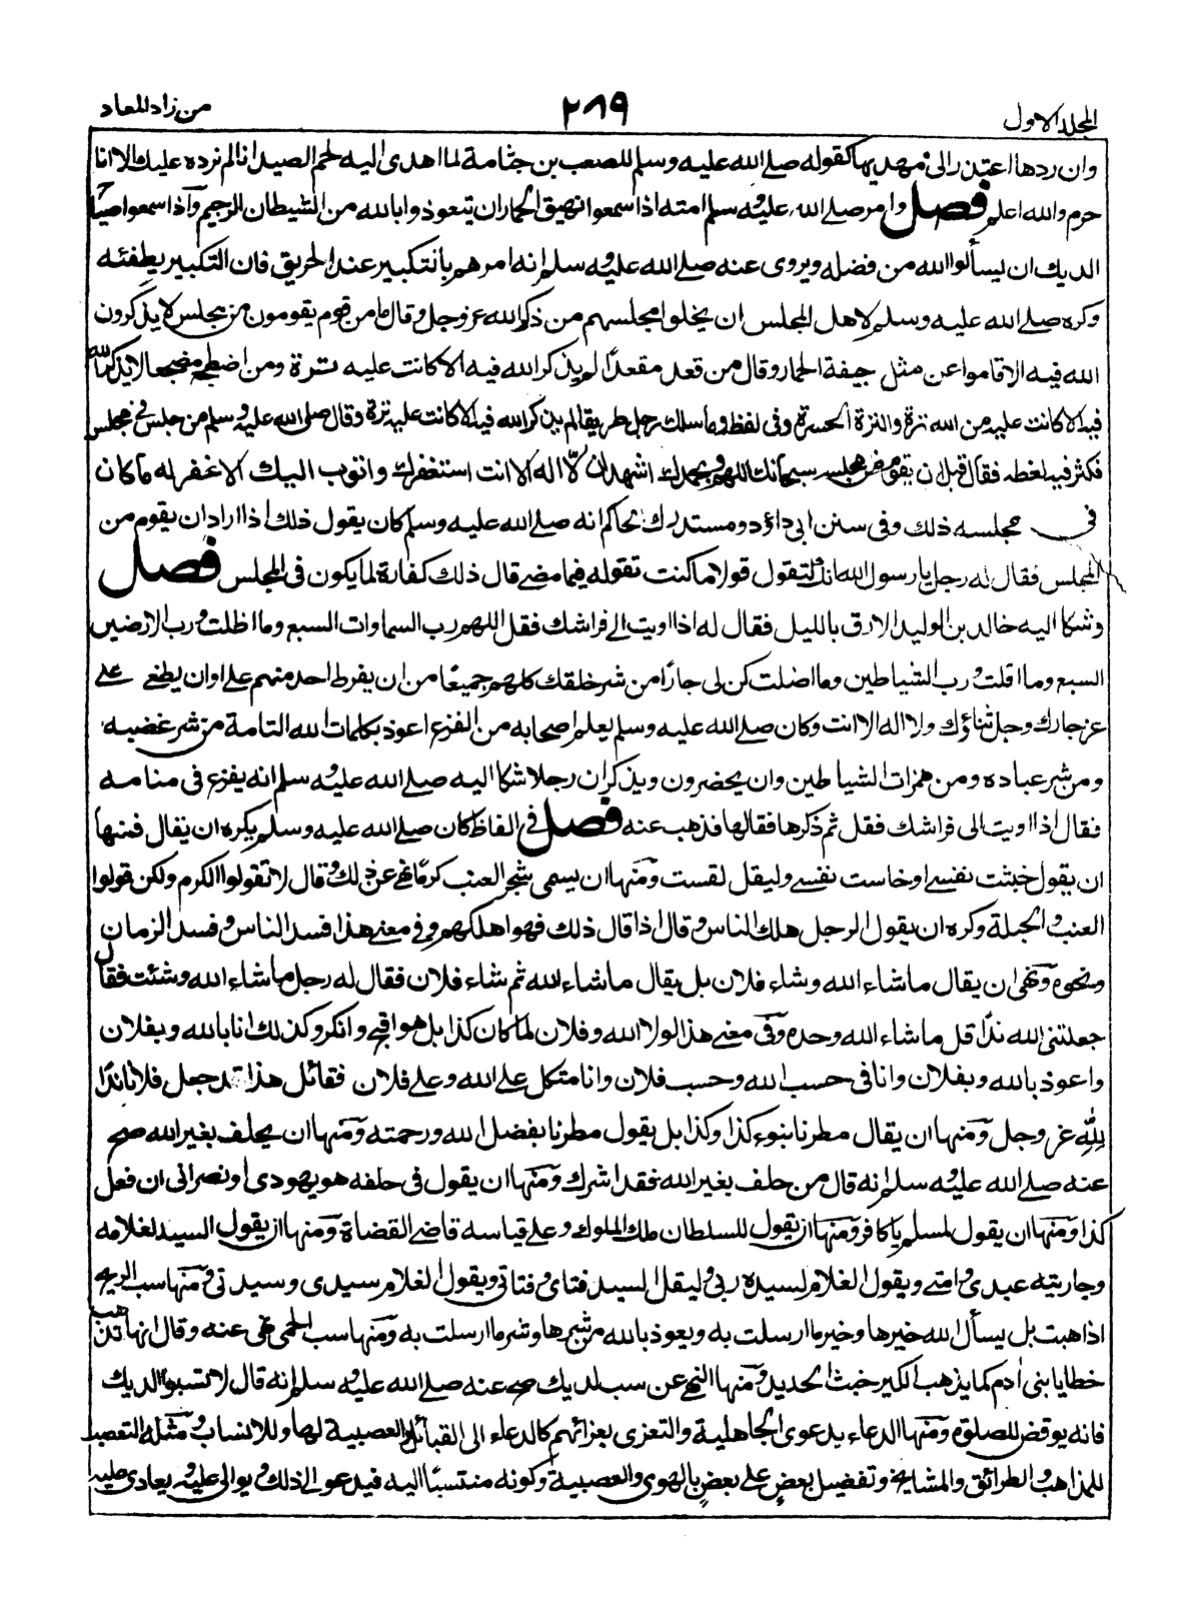 المجلد الاول
٢٨٩
من زاد المعاد
وان ردها اعتذر الى مهديها كقوله صلے الله عليه وسلم للصعب بن جثامة لما اهدى اليه لحم الصيد انا لم نرده عليك الا انا
حرم والله اعلم فصل وامر صلے الله عليه وسلم امته اذا سمعوا نهيق الحمار ان يتعوذوا بالله من الشيطان الرجيم واذا سمعوا صياح
الديك ان يسألوا الله من فضله ويروى عنه صلے الله عليه وسلم انه امرهم بالتكبير عند الحريق فان التكبير يطفئه
وكره صلے الله عليه وسلم لاهل المجلس ان يخلوا مجلسهم من ذكر الله عز وجل وقال ما من قوم يقومون من مجلس لا يذكرون
الله فيه الا قاموا عن مثل جيفة الحمار وقال من قعد مقعدًا لم يذكر الله فيه الا كانت عليه ترة ومن اضطجع مضجعا لا يذكر الله
فيه الا كانت عليه من الله ترة والترة الحسرة وفى لفظ وما سلك رجل طريقا لم يذكر الله فيه الا كانت عليه ترة وقال صلى الله عليه وسلم من جلس فى مجلس
فكثر فيه لغطه فقال قبل ان يقوم من مجلسه سبحانك اللهم وبحمدك اشهد ان لّا اله الا انت استغفرك واتوب اليك الا غفر له ما كان
فى مجلسه ذلك وفى سنن ابى داؤد ومستدرك الحاكم انه صلے الله عليه وسلم كان يقول ذلك اذا اراد ان يقوم من
المجلس فقال له رجل يا رسول الله انك لتقول قولا ما كنت تقوله فيما مضے قال ذلك كفارة لما يكون فى المجلس فصل
وشكا اليه خالد بن الوليد الارق بالليل فقال له اذا اويت الى فراشك فقل اللهم رب السماوات السبع وما اظلت ورب الارضين
السبع وما اقلت ورب الشياطين وما اضلت كن لى جارًا من شر خلقك كلهم جميعًا من ان يفرط احد منهم على اوان يطغے علے
عز جارك وجل ثناؤك ولا اله الا انت وكان صلے الله عليه وسلم يعلم اصحابه من الفزع اعوذ بكلمات الله التامة من شر غضبه
ومن شر عباده ومن همزات الشياطين وان يحضرون ويذكر ان رجلا شكا اليه صلے الله عليه وسلم انه يفزع فى منامه
فقال اذا اويت الى فراشك فقل ثم ذكرها فقالها فذهب عنه فصل فى الفاظ كان صلے الله عليه وسلم يكره ان يقال فمنها
ان يقول خبثت نفسے او خاست نفسے وليقل لقست ومنها ان يسمى شجر العنب كرمًا نهے عن ذلك وقال لا تقولوا الكرم ولكن قولوا
العنب والحبلة وكره ان يقول الرجل هلك الناس وقال اذا قال ذلك فهو اهلكهم وفى معنے هذا فسد الناس وفسد الزمان
ونحوه ونهى ان يقال ما شاء الله وشاء فلان بل يقال ما شاء الله ثم شاء فلان فقال له رجل ما شاء الله وشئت فقال
جعلتنى الله ندًا قل ما شاء الله وحده وفى معنے هذا لولا الله وفلان لما كان كذا بل هو اقبح وانكر وكذلك انا بالله وبفلان
واعوذ بالله وبفلان وانا فى حسب الله وحسب فلان وانا متكل علے الله وعلے فلان فقائل هذا قد جعل فلانا ندًا
لِلّٰهِ عز وجل ومنها ان يقال مطرنا بنوء كذا وكذا بل يقول مطرنا بفضل الله ورحمته ومنها ان يحلف بغير الله صح
عنه صلے الله عليه وسلم انه قال من حلف بغير الله فقد اشرك ومنها ان يقول فى حلفه هو يهودى او نصرانى ان فعل
كذا ومنها ان يقول لمسلم يا كافر ومنها ان يقول للسلطان ملك الملوك وعلے قياسه قاضے القضاة ومنها ان يقول السيد لغلامه
وجاريته عبدى وامتے ويقول الغلام لسيده ربى وليقل السيد فتاى وفتاتى ويقول الغلام سيدى وسيدتى ومنها سب الريح
اذا هبت بل يسأل الله خيرها وخير ما ارسلت به ويعوذ بالله من شرها وشر ما ارسلت به ومنها سب الحمى نهى عنه وقال انها تذهب
خطايا بنى اٰدم كما يذهب الكير خبث الحديد ومنها النهے عن سب الديك صح عنه صلے الله عليه وسلم انه قال لا تسبوا الديك
فانه يوقض للصلوة ومنها الدعاء بدعوى الجاهلية والتعزى بعزائهم كالدعاء الى القبائل والعصبية لها وللانساب ومثله التعصب
للمذاهب والطرائق والمشايخ وتفضيل بعضٍ على بعضٍ بالهوى والعصبية وكونه منتسبًا اليه فيدعو الى ذلك ويوالى عليه ويعادى عليه